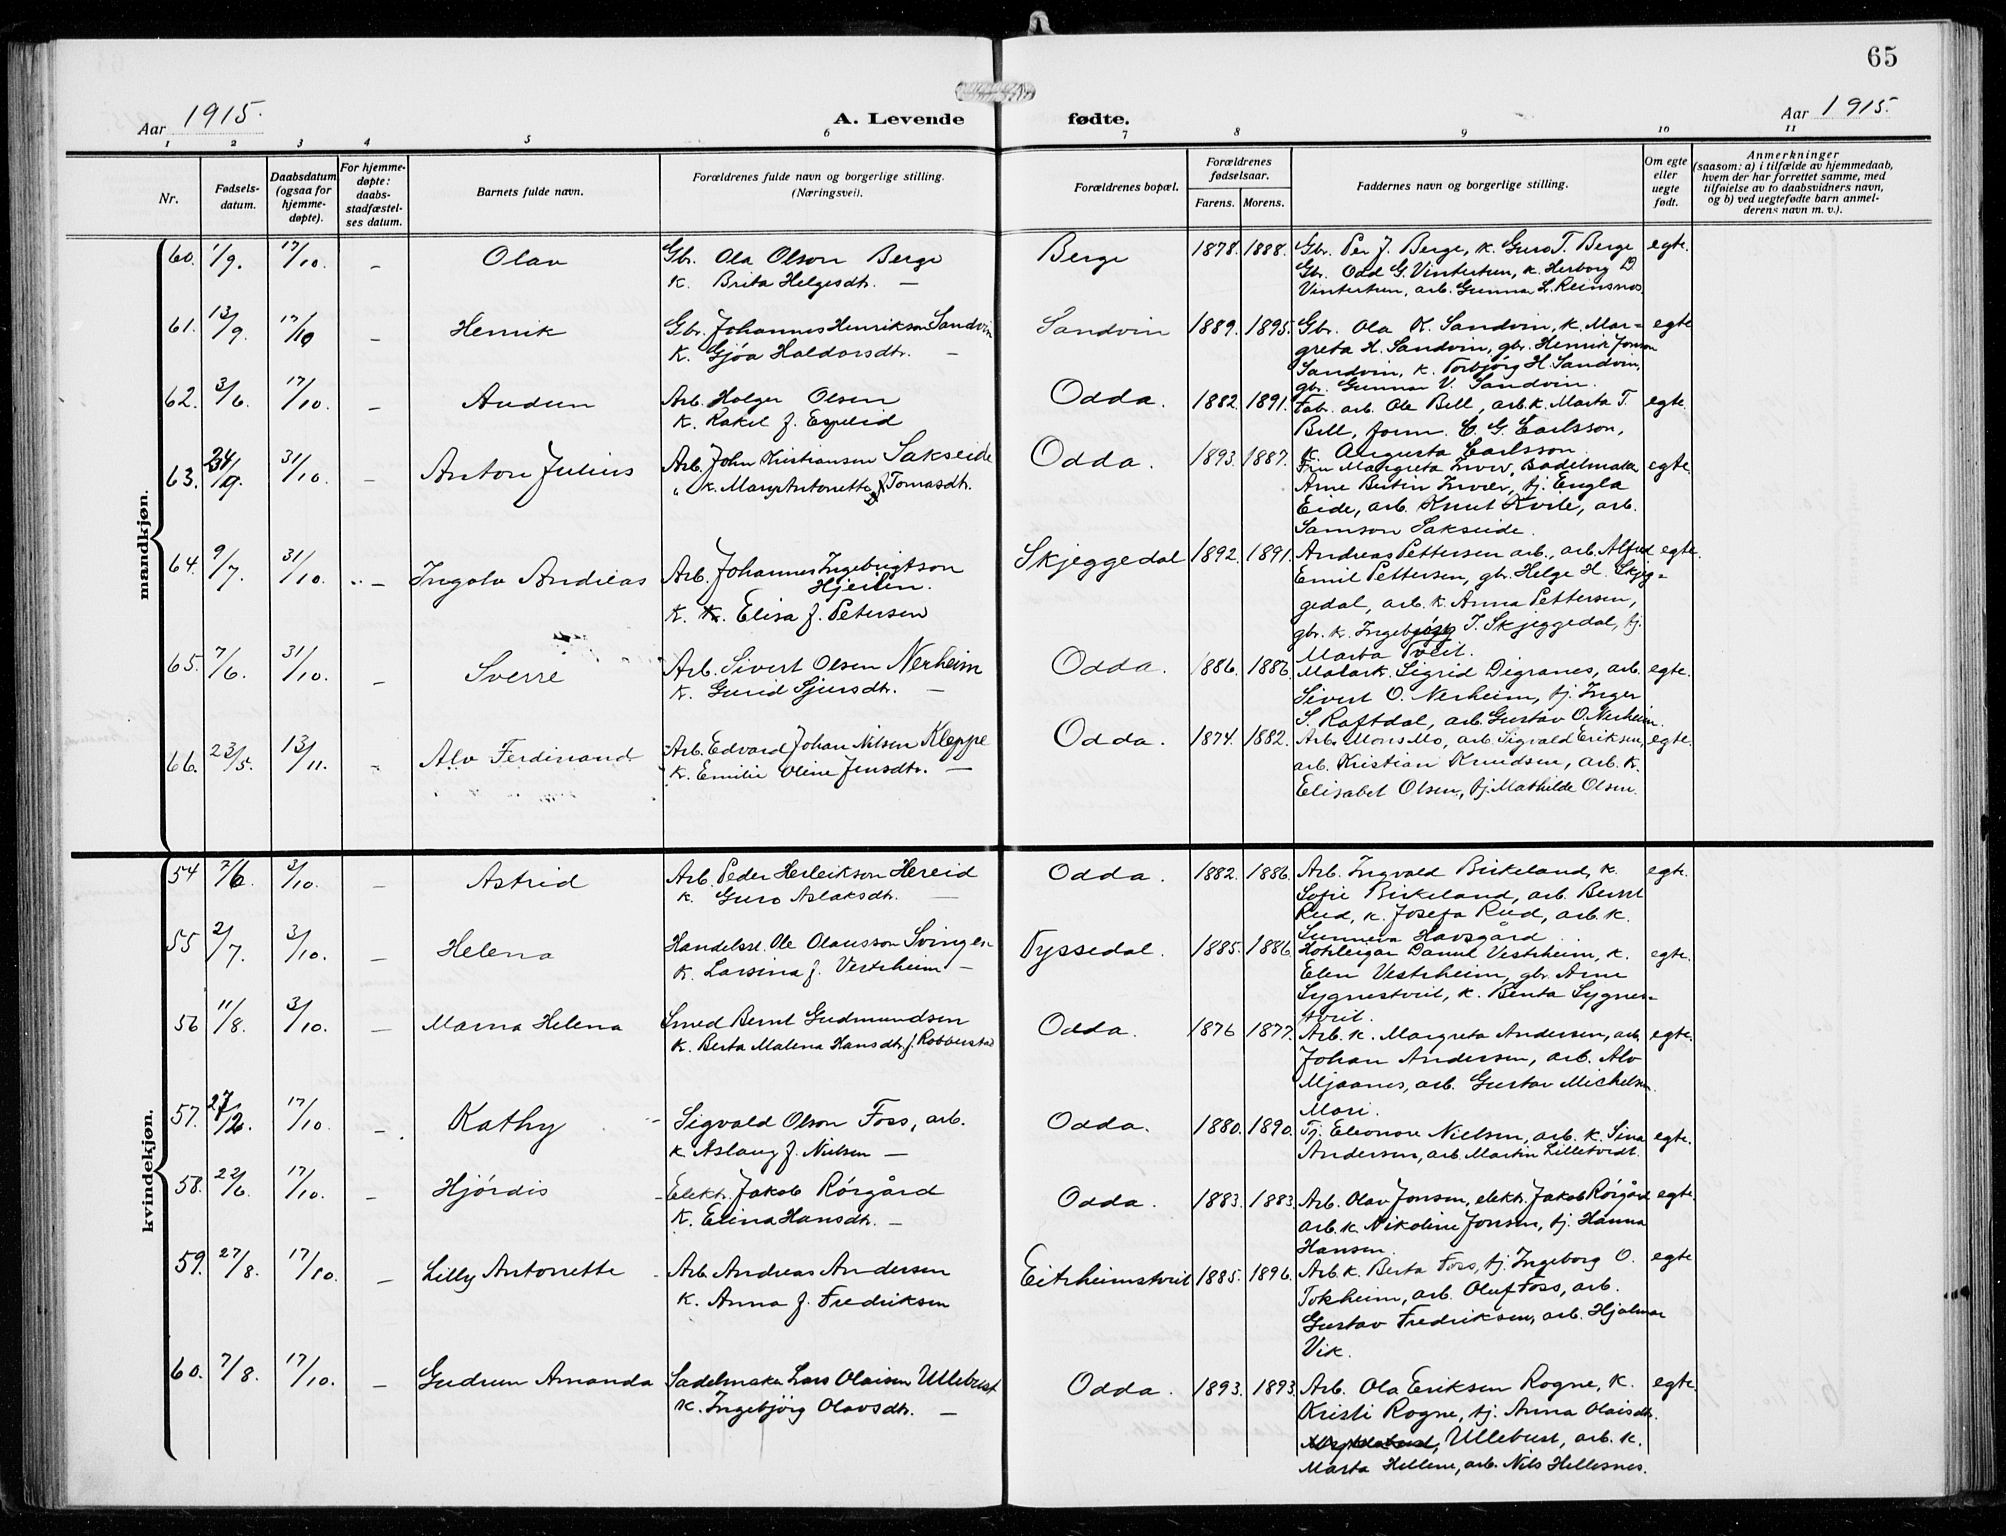 65
Aar 1915.
A. Levende fødte.
Aar 1915.
1 2 3 4 5 6 7 8 9 10 11
Nr.
Fødsels-
datum.
Daabsdatum
(ogsaa for
hjemme-
døpte).
For hjemme-
døpte:
daabs-
stadfæstel-
ses datum.
Barnets fulde navn.
Forældrenes fulde navn og borgerlige stilling.
(Næringsvei).
Forældrenes bopæl.
Forældrenes
fødselsaar.
Farens. Morens.
Faddernes navn og borgerlige stilling.
Om egte
eller
uegte
født.
Anmerkninger
(saasom: a) i tilfælde av hjemmedaab,
hvem der har forrettet samme, med
tilføielse av to daabsvidners navn,
og b) ved uegtefødte barn anmel-
derens navn m. v.).
mandkjøn.
60. 1/9. 17/10. – Olav
Gbr. Ola Olson Berge
K. Brita Helgesdtr. –
Berge 1878. 1888.
Gbr. Per J. Berge, k. Guro T. Berge
Gbr. Odd G. Vintertun, k. Herborg D
Vintertun, arb. Gunnar L. Reinsnos.
egte.
61. 13/9. 17/10 – Henrik
Gbr. Johannes Henrikson Sandvin
K. Gjøa Haldorsdtr. –
Sandvin 1889. 1895.
Gbr. Ola K. Sandvin, k. Mar-
greta H. Sandvin, gbr. Henrik Jonson
Sandvin, k. Torbjørg H. Sandvin,
gbr. Gunnar V. Sandvin.
egte
62. 3/6. 17/10. – Audun
Arb. Holger Olsen
K. Rakel f. Espelid
Odda. 1882. 1891.
Fabr. arb. Ole Bell, arb.k. Marta T.
Bell, form. C. G. Carlsson,
k. Augusta Carlsson.
egte.
63. 24/9. 31/10. – Anton Julius
Arb. John Kristiansen Sakseide
" k. Mary Antonette Tomasdtr.
Odda. 1893. 1887.
Fru Margreta Inver, Sadelmaker
Arne Bertin Inver, tj. Engla
Eide, arb. Knut Kvile, arb.
Samson Sakseide.
egte.
64. 9/7. 31/10. – Ingolv Andreas
Arb. Johannes Ingebrigtson
Hjeilen.
K. Elisa f. Petersen
Skjeggedal 1892. 1891.
Andreas Pettersen arb., arb. Alfred
Emil Pettersen, gbr. Helge H. Skjeg-
gedal, arb. k. Anna Pettersen,
gbr. k. Ingebjørg T. Skjeggedal, tj.
Marta Tveit.
egte.
65. 7/6. 31/10. – Sverre
Arb. Sivert Olsen Nerheim
K. Gurid Sjursdtr. –
Odda. 1886. 1886.
Sigrid Digranes, arb.
Sivert O. Nerheim, tj. Inger
S. Raftdal, arb. Gustav O. Nerheim.
egte.
66. 23/5. 13/11. – Alv Ferdinand
Arb. Edvard Johan Nilsen Kleppe
K. Emilie Oline Jensdtr. –
Odda. 1874. 1882.
Arb. Mons Mo, arb. Sigvald Eriksen,
arb. Kristian Knudsen, arb. k.
Elisabet Olsen, tj. Mathilde Olsen.
egte.
kvindekjøn.
54 7/6. 3/10. – Astrid
Arb. Peder Herleikson Hereid
K. Guro Aslaksdtr. –
Odda. 1882. 1886.
Arb. Ingvald Birkeland, k.
Sofie Birkeland, arb. Bernt
Rud, k. Josefa Rud, arb. k.
Sunneva Havsgård
egte.
55 2/7. 3/10. – Helena
Handelsst. Ole Olausson Svingen
K. Larsina f. Vestrheim –
Tyssedal. 1885. 1886
Hoteleigar Daniel Vestrheim, k.
Elen Vestrheim, gbr. Arne
Sygnestveit, k. Benta Sygnes-
tveit.
egte.
56 11/8. 3/10. – Marna Helena
Smed Bernt Gudmundsen
K. Berta Malena Hansdtr. f. Robberstad
Odda. 1876 1877.
Arb. k. Margreta Andersen, arb.
Johan Andersen, arb. Alv
Mjaanes, arb. Gustav Michelsen
Mori.
egte.
57. 27/2. 17/10. – Kathy
Sigvald Olson Foss, arb.
K. Aslaug f. Nielsen –
Odda. 1880. 1890.
Tj. Eleonore Nielsen, arb. k. Sina
Andersen, arb. Martin Lilletvedt.
egte.
58. 22/6. 17/10. – Hjørdis
Elektr. Jakob Rørgård
K. Elina Hansdtr. –
Odda. 1883. 1883.
Arb. Olav Jonsen, elektr. Jakob Rørgård
arb. k. Nikoline Jonsen, tj. Hanna
Hansen.
egte.
59. 27/8. 17/10. – Lilly Antonette
Arb. Andreas Andersen
K. Anna f. Fredriksen
Eitrheimstveit 1885. 1896.
Arb. k. Berta Foss, tj. Ingeborg O.
Tokheim, arb. Oluf Foss, arb.
Gustav Fredriksen, arb. Hjalmar
Vik.
egte
60. 7/8. 17/10. – Gudrun Amanda
Sadelmaker Lars Olaisen Ullebust
K. Ingebjörg Olavsdtr. –
Odda. 1893. 1893.
Arb. Ola Eriksen Rogne, k.
Kristi Rogne, tj. Anna Olaisdtr.
Ullebust, arb. k.
Marta Hellene, arb. Nils Hellesnes.
egte.